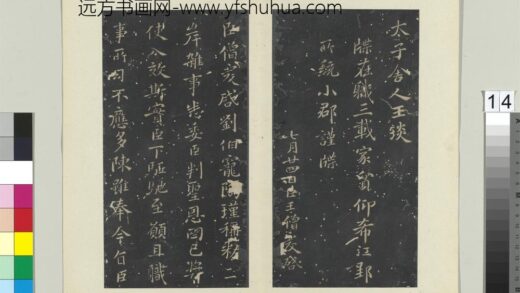 远方书画网-www.yfshuhua.com
太子舍人王琰
牒在職三載家貧仰希江郢
所統小郡謹牒
七月廿四日臣王僧虔啓
臣僧虔啓劉伯寵陳瑾稱敕二
岸雜事悉委臣判聖恩罔已將
使入效斯實臣下驅馳至願且職
事所司不應多陳雖奉今旨臣
14